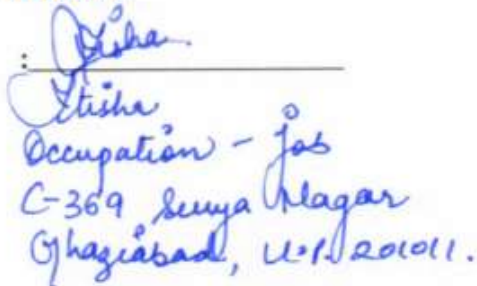 : Itisha
Itisha
Occupation - job
C-369 Surya Nagar
Ghaziabad, U.P. 201011.